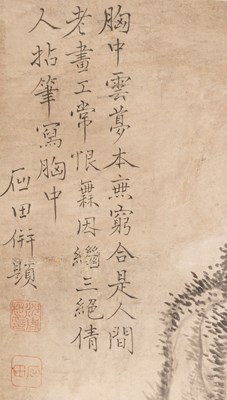 胸中雲夢本無窮合是人間
老畫工常恨無因繼三絕倩
人拈筆寫胸中
石田併題